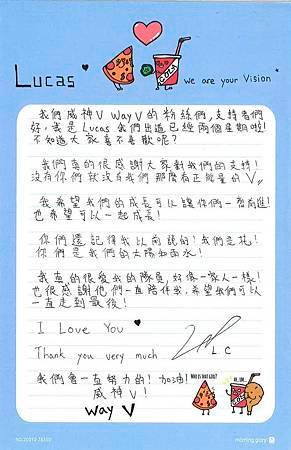 Lucas
we are your Vision
我們威神V WayV的粉絲們,支持者們
好,我是Lucas 我們出道已經兩個星期啦!
不知道大家喜不喜歡呢?
我們真的很感謝大家對我們的支持!
沒有你們就沒有我們 那麼有正能量的V。
我希望我們的成長可以讓你們一看
也希望可以一起成長!
你們還記得我以前說的!我們是
你們是我們的太陽和雨水!
我真的很愛我的隊員,好像一家人一樣!
也很感謝他們一直陪伴我,希望我們可以
一直走到最後!
I Love You
Thank you very much
LC
我們會一直努力的!加油!
威神V!
Way V
morning glory